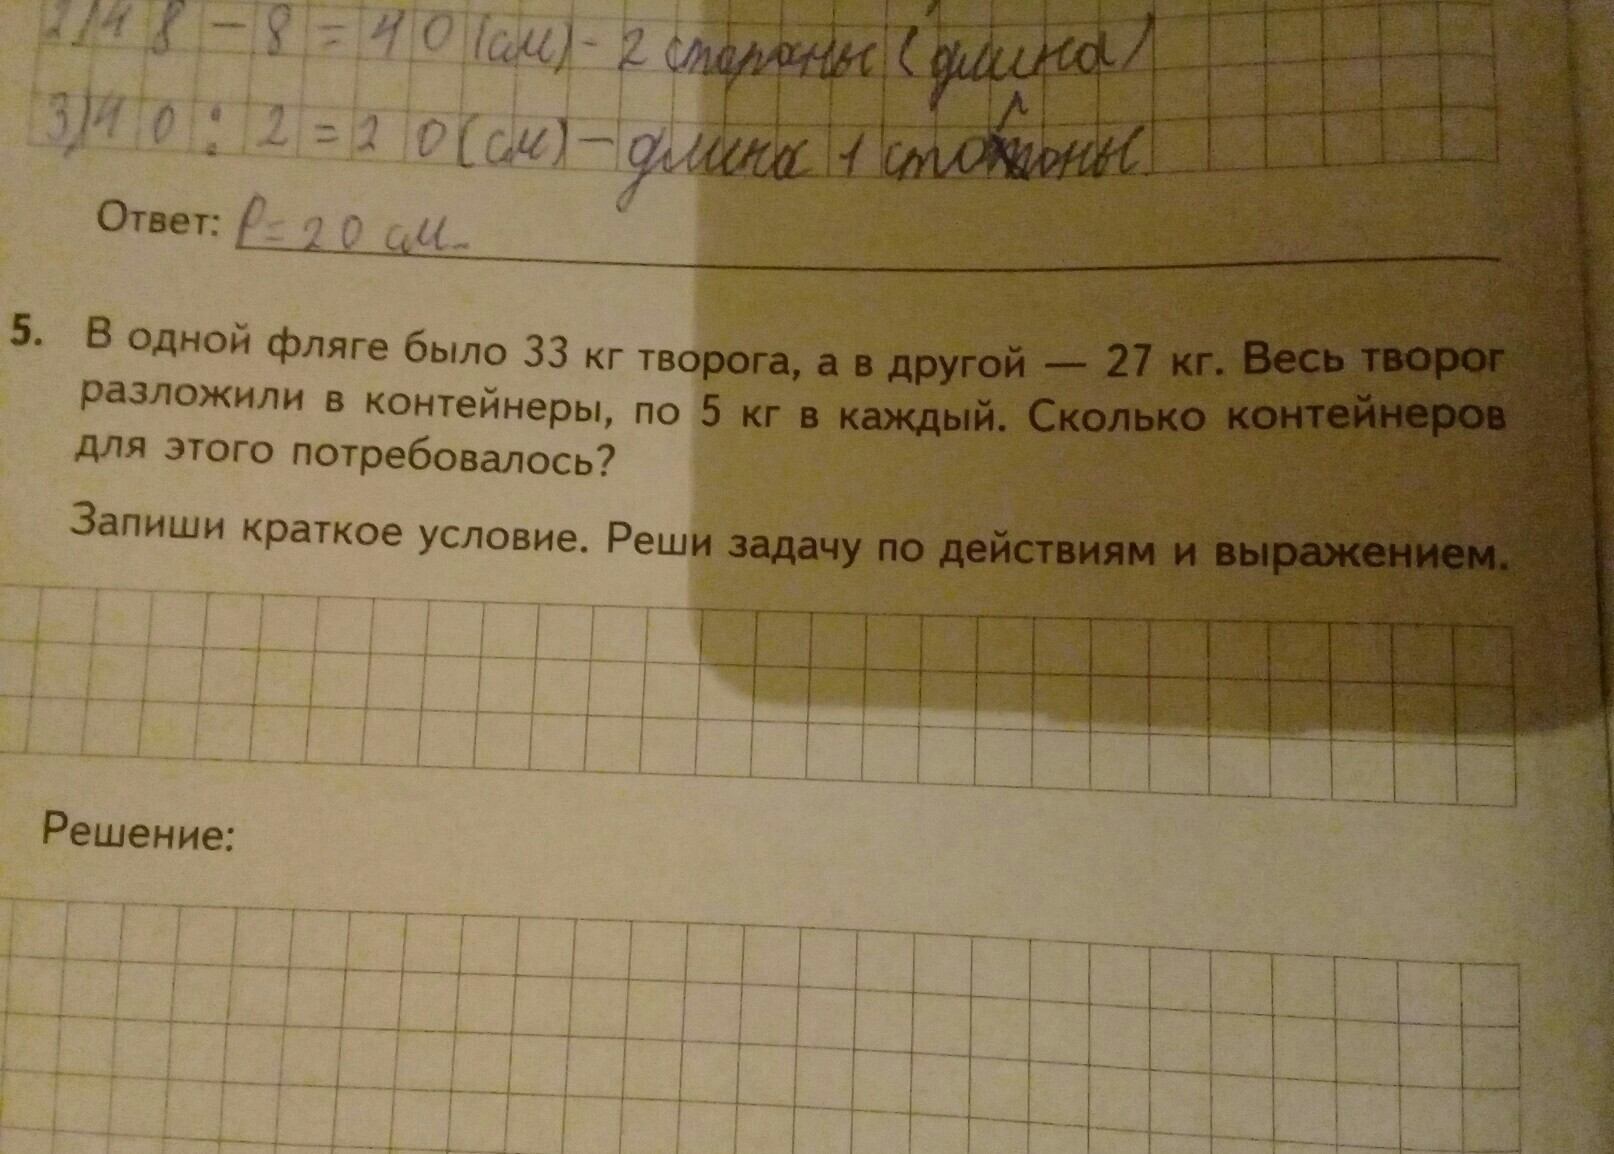 2) 48 - 8 = 40 (см) - 2 стороны (длина)
3) 40 : 2 = 20 (см) - длина 1 стороны.
Ответ: P = 20 см.
5. В одной фляге было 33 кг творога, а в другой — 27 кг. Весь творог
разложили в контейнеры, по 5 кг в каждый. Сколько контейнеров
для этого потребовалось?
Запиши краткое условие. Реши задачу по действиям и выражением.
Решение: